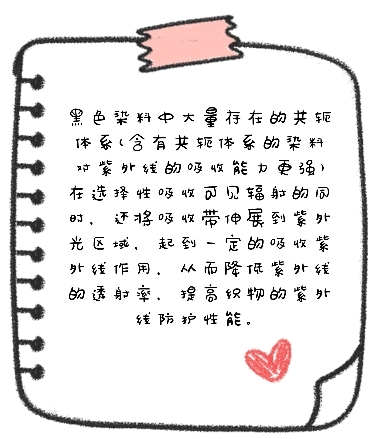 黑色染料中大量存在的共轭
体系(含有共轭体系的染料
对紫外线的吸收能力更强)
在选择性吸收可见辐射的同
时，还将吸收带伸展到紫外
光区域，起到一定的吸收紫
外线作用，从而降低紫外线
的透射率，提高织物的紫外
线防护性能。